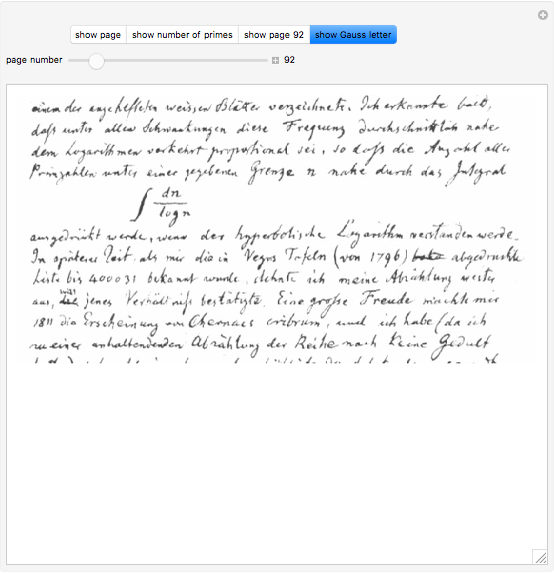 show page show number of primes show page 92 show Gauss letter
page number 92
einem der angehefteten weissen Blätter verzeichnete. Ich erkannte bald,
dass unter allen Schwankungen diese Frequenz durchschnittlich nahe
dem Logarithmen verkehrt proportional sei, so dass die Anzahl aller
Primzahlen unter einer gegebenen Grenze n nahe durch das Integral
∫ dn / log n
ausgedrückt werde, wenn der hyperbolische Logarithm verstanden werde.
In späterer Zeit, als mir die in Vegas Tafeln (von 1796) abgedruckte
Liste bis 400031 bekannt wurde, dehnte ich meine Abzählung weiter
aus, was jenes Verhältniß bestätigte. Eine große Freude machte mir
1811 die Erscheinung von Chernacs cribrum, und ich habe (da ich
zu einer anhaltenden Abzählung der Reihe nach keine Gedult